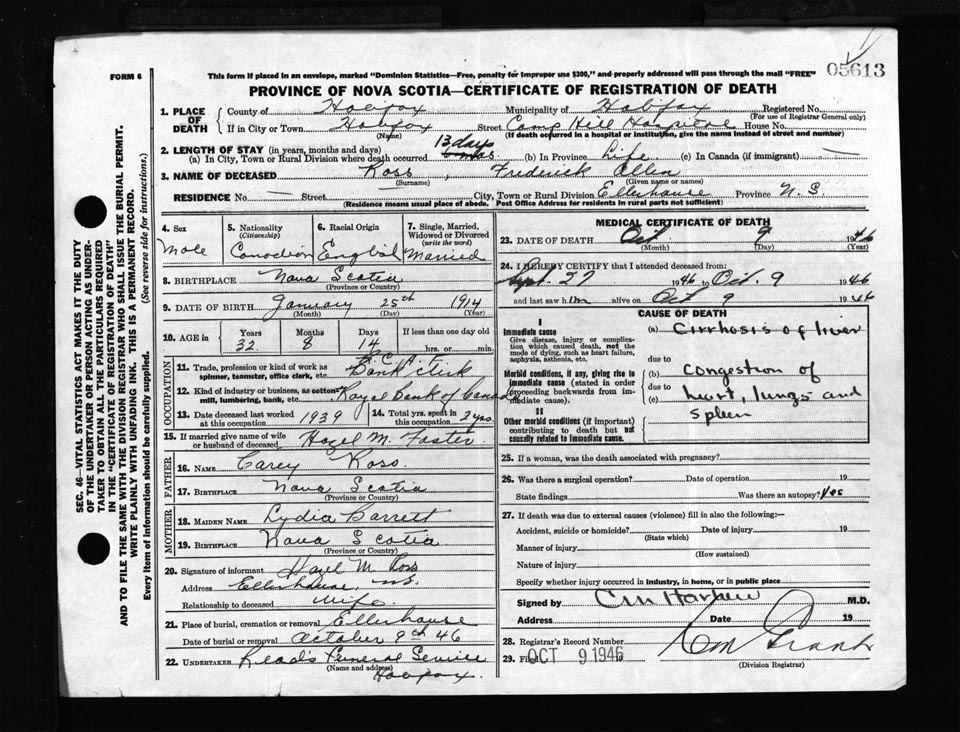 05613
FORM 6
This form if placed in an envelope, marked "Dominion Statistics—Free, penalty for improper use $300," and properly addressed will pass through the mail "FREE"
PROVINCE OF NOVA SCOTIA—CERTIFICATE OF REGISTRATION OF DEATH
SEC. 46—VITAL STATISTICS ACT MAKES IT THE DUTY
OF THE UNDERTAKER OR PERSON ACTING AS UNDER-
TAKER TO OBTAIN ALL THE PARTICULARS REQUIRED
IN THE "CERTIFICATE OF REGISTRATION OF DEATH"
AND TO FILE THE SAME WITH THE DIVISION REGISTRAR WHO SHALL ISSUE THE BURIAL PERMIT.
WRITE PLAINLY WITH UNFADING INK. THIS IS A PERMANENT RECORD.
Every item of information should be carefully supplied. (See reverse side for instructions.)
1. PLACE OF DEATH County of Halifax Municipality of Halifax Registered No.
(For use of Registrar General only)
If in City or Town Halifax Street Camp Hill Hospital House No.
(Name) (If death occurred in a hospital or institution, give the name instead of street and number)
2. LENGTH OF STAY (in years, months and days) 13 days
(a) In City, Town or Rural Division where death occurred (b) In Province Life (c) In Canada (if immigrant) —
3. NAME OF DECEASED Ross, Frederick Allen
(Surname) (Given name or names)
RESIDENCE No. — Street City, Town or Rural Division Ellerhouse Province N.S
(Residence means usual place of abode. Post Office Address for residents in rural parts not sufficient)
4. Sex
Male
5. Nationality
(Citizenship)
Canadian
6. Racial Origin
English
7. Single, Married,
Widowed or Divorced
(write the word)
Married
8. BIRTHPLACE Nova Scotia
(Province or Country)
9. DATE OF BIRTH January 25th 1914
(Month) (Day) (Year)
10. AGE in Years Months Days If less than one day old
32 8 14 hrs. or min.
OCCUPATION
11. Trade, profession or kind of work as
spinner, teamster, office clerk, etc. Bank clerk
12. Kind of industry or business, as cotton-
mill, lumbering, bank, etc. Royal Bank of Canada
13. Date deceased last worked
at this occupation 1939
14. Total yrs. spent in
this occupation 2 yrs.
15. If married give name of wife
or husband of deceased Hazel M. Foster
FATHER
16. NAME Carey Ross.
17. BIRTHPLACE Nova Scotia
(Province or Country)
MOTHER
18. MAIDEN NAME Lydia Barrett
19. BIRTHPLACE Nova Scotia
(Province or Country)
20. Signature of informant Hazel M. Ross
Address Ellerhouse, N.S.
Relationship to deceased wife.
21. Place of burial, cremation or removal Ellerhouse
Date of burial or removal October 9th 46
22. UNDERTAKER Read's Funeral Service
(Name and address) Halifax.
MEDICAL CERTIFICATE OF DEATH
23. DATE OF DEATH Oct. 9 1946
(Month) (Day) (Year)
24. I HEREBY CERTIFY that I attended deceased from:
Sept. 27 1946 to Oct. 9 1946
and last saw him alive on Oct 9 1946
CAUSE OF DEATH
I
Immediate cause
Give disease, injury or complica-
tion which caused death, not the
mode of dying, such as heart failure,
asphyxia, asthenia, etc.
(a) Cirrhosis of liver
due to
Morbid conditions, if any, giving rise to
immediate cause (stated in order
proceeding backwards from im-
mediate cause).
(b) congestion of
due to
(c) heart, lungs and
spleen
II
Other morbid conditions (if important)
contributing to death but not
causally related to immediate cause.
25. If a woman, was the death associated with pregnancy?
26. Was there a surgical operation? Date of operation 19
State findings Was there an autopsy? Yes
27. If death was due to external causes (violence) fill in also the following:—
Accident, suicide or homicide? Date of injury 19
(State which)
Manner of injury
(How sustained)
Nature of injury
Specify whether injury occurred in industry, in home, or in public place
Signed by M.D.
Address Date 19
28. Registrar's Record Number
29. Filed OCT 9 1946
(Division Registrar)